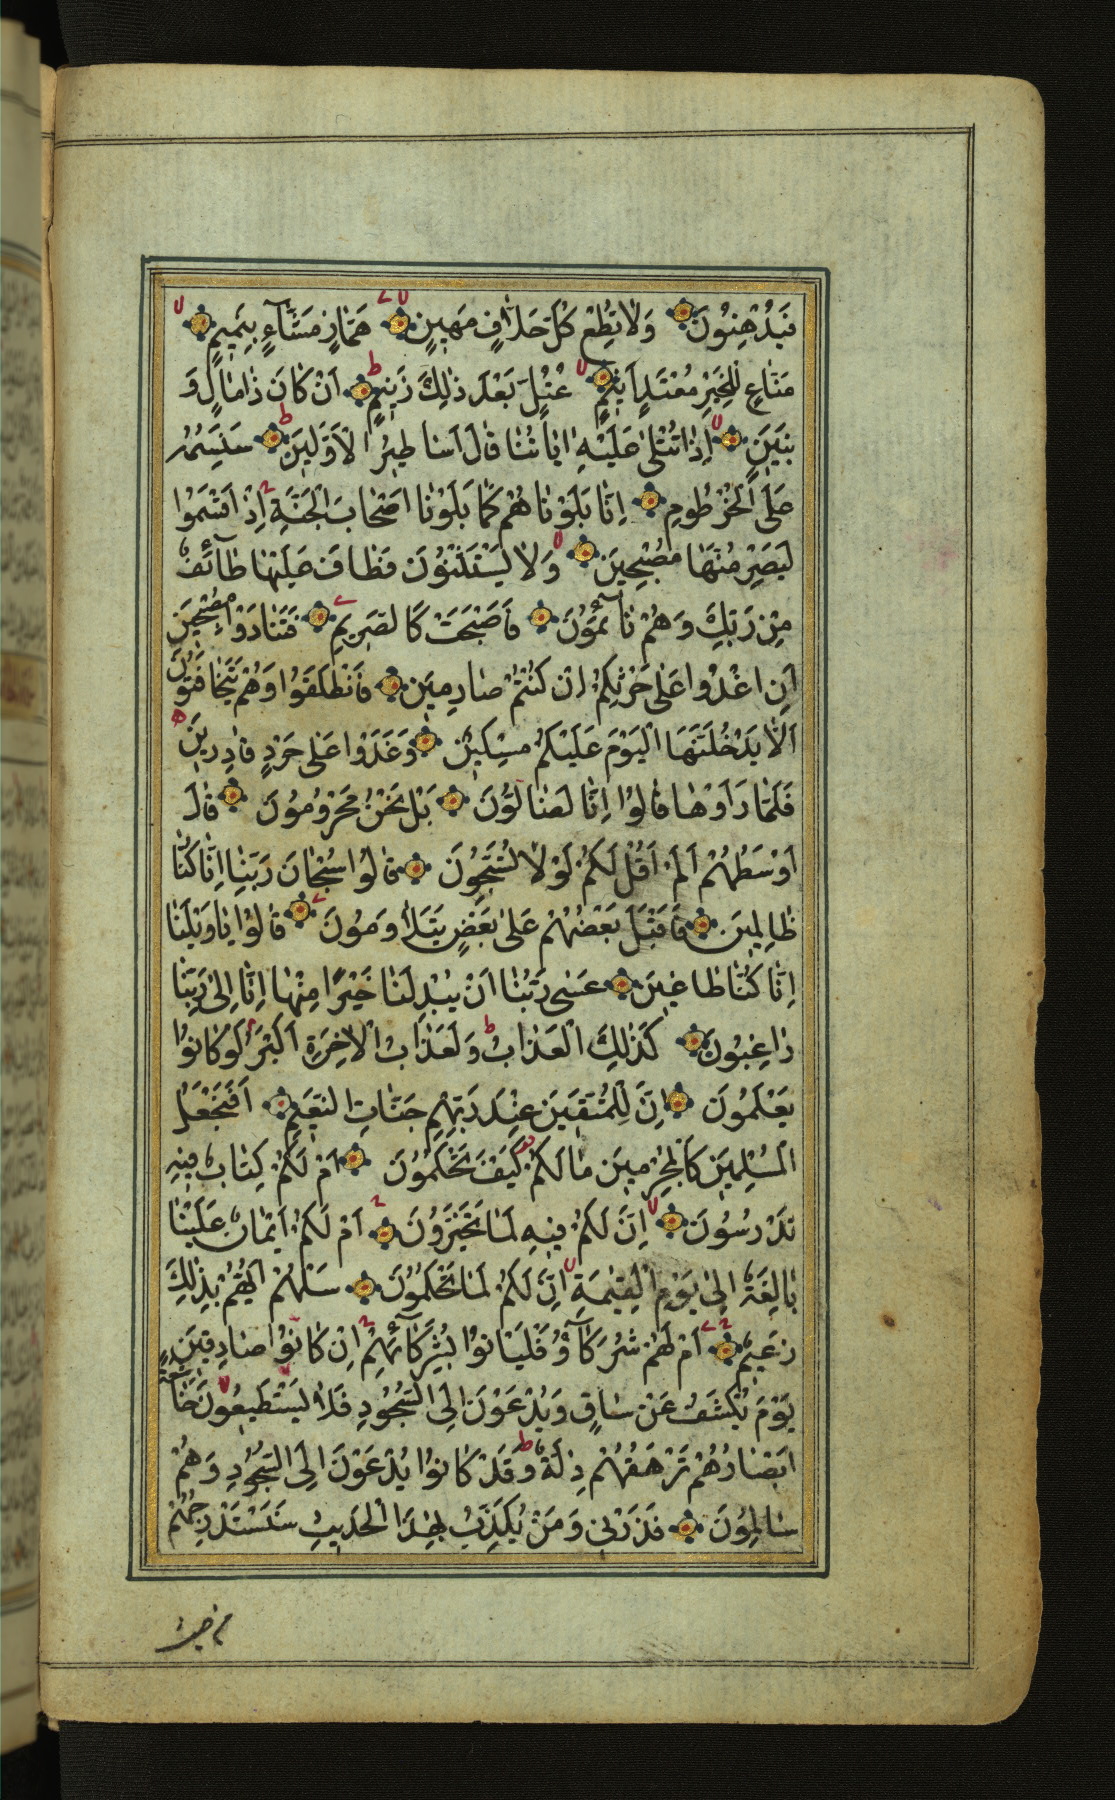 فَيُدْهِنُونَ وَلَا تُطِعْ كُلَّ حَلَّافٍ مَهِينٍ هَمَّازٍ مَشَّاءٍ بِنَمِيمٍ
مَنَّاعٍ لِلْخَيْرِ مُعْتَدٍ أَثِيمٍ عُتُلٍّ بَعْدَ ذٰلِكَ زَنِيمٍ اَنْ كَانَ ذَا مَالٍ وَ
بَنِينَ اِذَا تُتْلٰى عَلَيْهِ اٰيَاتُنَا قَالَ اَسَاطِيرُ الْاَوَّلِينَ سَنَسِمُهُ
عَلَى الْخُرْطُومِ اِنَّا بَلَوْنَاهُمْ كَمَا بَلَوْنَا اَصْحَابَ الْجَنَّةِ اِذْ اَقْسَمُوا
لَيَصْرِمُنَّهَا مُصْبِحِينَ وَلَا يَسْتَثْنُونَ فَطَافَ عَلَيْهَا طَآئِفٌ
مِنْ رَبِّكَ وَهُمْ نَآئِمُونَ فَاَصْبَحَتْ كَالصَّرِيمِ فَتَنَادَوْا مُصْبِحِينَ
اَنِ اغْدُوا عَلٰى حَرْثِكُمْ اِنْ كُنْتُمْ صَارِمِينَ فَانْطَلَقُوا وَهُمْ يَتَخَافَتُونَ
اَلَّا يَدْخُلَنَّهَا الْيَوْمَ عَلَيْكُمْ مِسْكِينٌ وَغَدَوْا عَلٰى حَرْدٍ قَادِرِينَ
فَلَمَّا رَاَوْهَا قَالُوا اِنَّا لَضَآلُّونَ بَلْ نَحْنُ مَحْرُومُونَ قَالَ
اَوْسَطُهُمْ اَلَمْ اَقُلْ لَكُمْ لَوْلَا تُسَبِّحُونَ قَالُوا سُبْحَانَ رَبِّنَا اِنَّا كُنَّا
ظَالِمِينَ فَاَقْبَلَ بَعْضُهُمْ عَلٰى بَعْضٍ يَتَلَاوَمُونَ قَالُوا يَا وَيْلَنَا
اِنَّا كُنَّا طَاغِينَ عَسٰى رَبُّنَا اَنْ يُبْدِلَنَا خَيْرًا مِنْهَا اِنَّا اِلٰى رَبِّنَا
رَاغِبُونَ كَذٰلِكَ الْعَذَابُ وَلَعَذَابُ الْاٰخِرَةِ اَكْبَرُ لَوْ كَانُوا
يَعْلَمُونَ اِنَّ لِلْمُتَّقِينَ عِنْدَ رَبِّهِمْ جَنَّاتِ النَّعِيمِ اَفَنَجْعَلُ
الْمُسْلِمِينَ كَالْمُجْرِمِينَ مَا لَكُمْ كَيْفَ تَحْكُمُونَ اَمْ لَكُمْ كِتَابٌ فِيهِ
تَدْرُسُونَ اِنَّ لَكُمْ فِيهِ لَمَا تَخَيَّرُونَ اَمْ لَكُمْ اَيْمَانٌ عَلَيْنَا
بَالِغَةٌ اِلٰى يَوْمِ الْقِيٰمَةِ اِنَّ لَكُمْ لَمَا تَحْكُمُونَ سَلْهُمْ اَيُّهُمْ بِذٰلِكَ
زَعِيمٌ اَمْ لَهُمْ شُرَكَآءُ فَلْيَاْتُوا بِشُرَكَآئِهِمْ اِنْ كَانُوا صَادِقِينَ
يَوْمَ يُكْشَفُ عَنْ سَاقٍ وَيُدْعَوْنَ اِلَى السُّجُودِ فَلَا يَسْتَطِيعُونَ خَاشِعَةً
اَبْصَارُهُمْ تَرْهَقُهُمْ ذِلَّةٌ وَقَدْ كَانُوا يُدْعَوْنَ اِلَى السُّجُودِ وَهُمْ
سَالِمُونَ فَذَرْنِي وَمَنْ يُكَذِّبُ بِهٰذَا الْحَدِيثِ سَنَسْتَدْرِجُهُمْ
من حيث